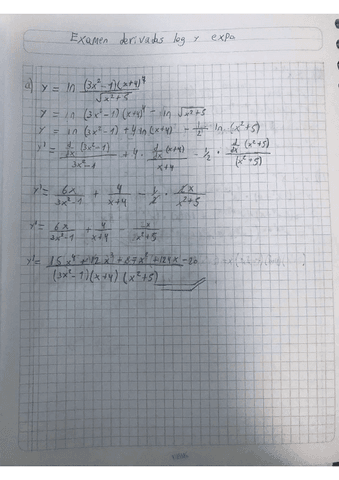 Examen derivadas log y expo
a) y = ln (3x²-1)(x+4)⁴ / √x²+5
y = ln (3x²-1)(x+4)⁴ - ln √x²+5
y = ln (3x²-1) + 4 ln (x+4) - 1/2 ln (x²+5)
y' = d/dx (3x²-1) / 3x²-1 + 4 · d/dx (x+4) / x+4 - 1/2 · d/dx (x²+5) / (x²+5)
y' = 6x / 3x²-1 + 4 / x+4 - 1/2 · 2x / x²+5
y' = 6x / 3x²-1 + 4 / x+4 - x / x²+5
y' = / (3x²-1)(x+4)(x²+5)